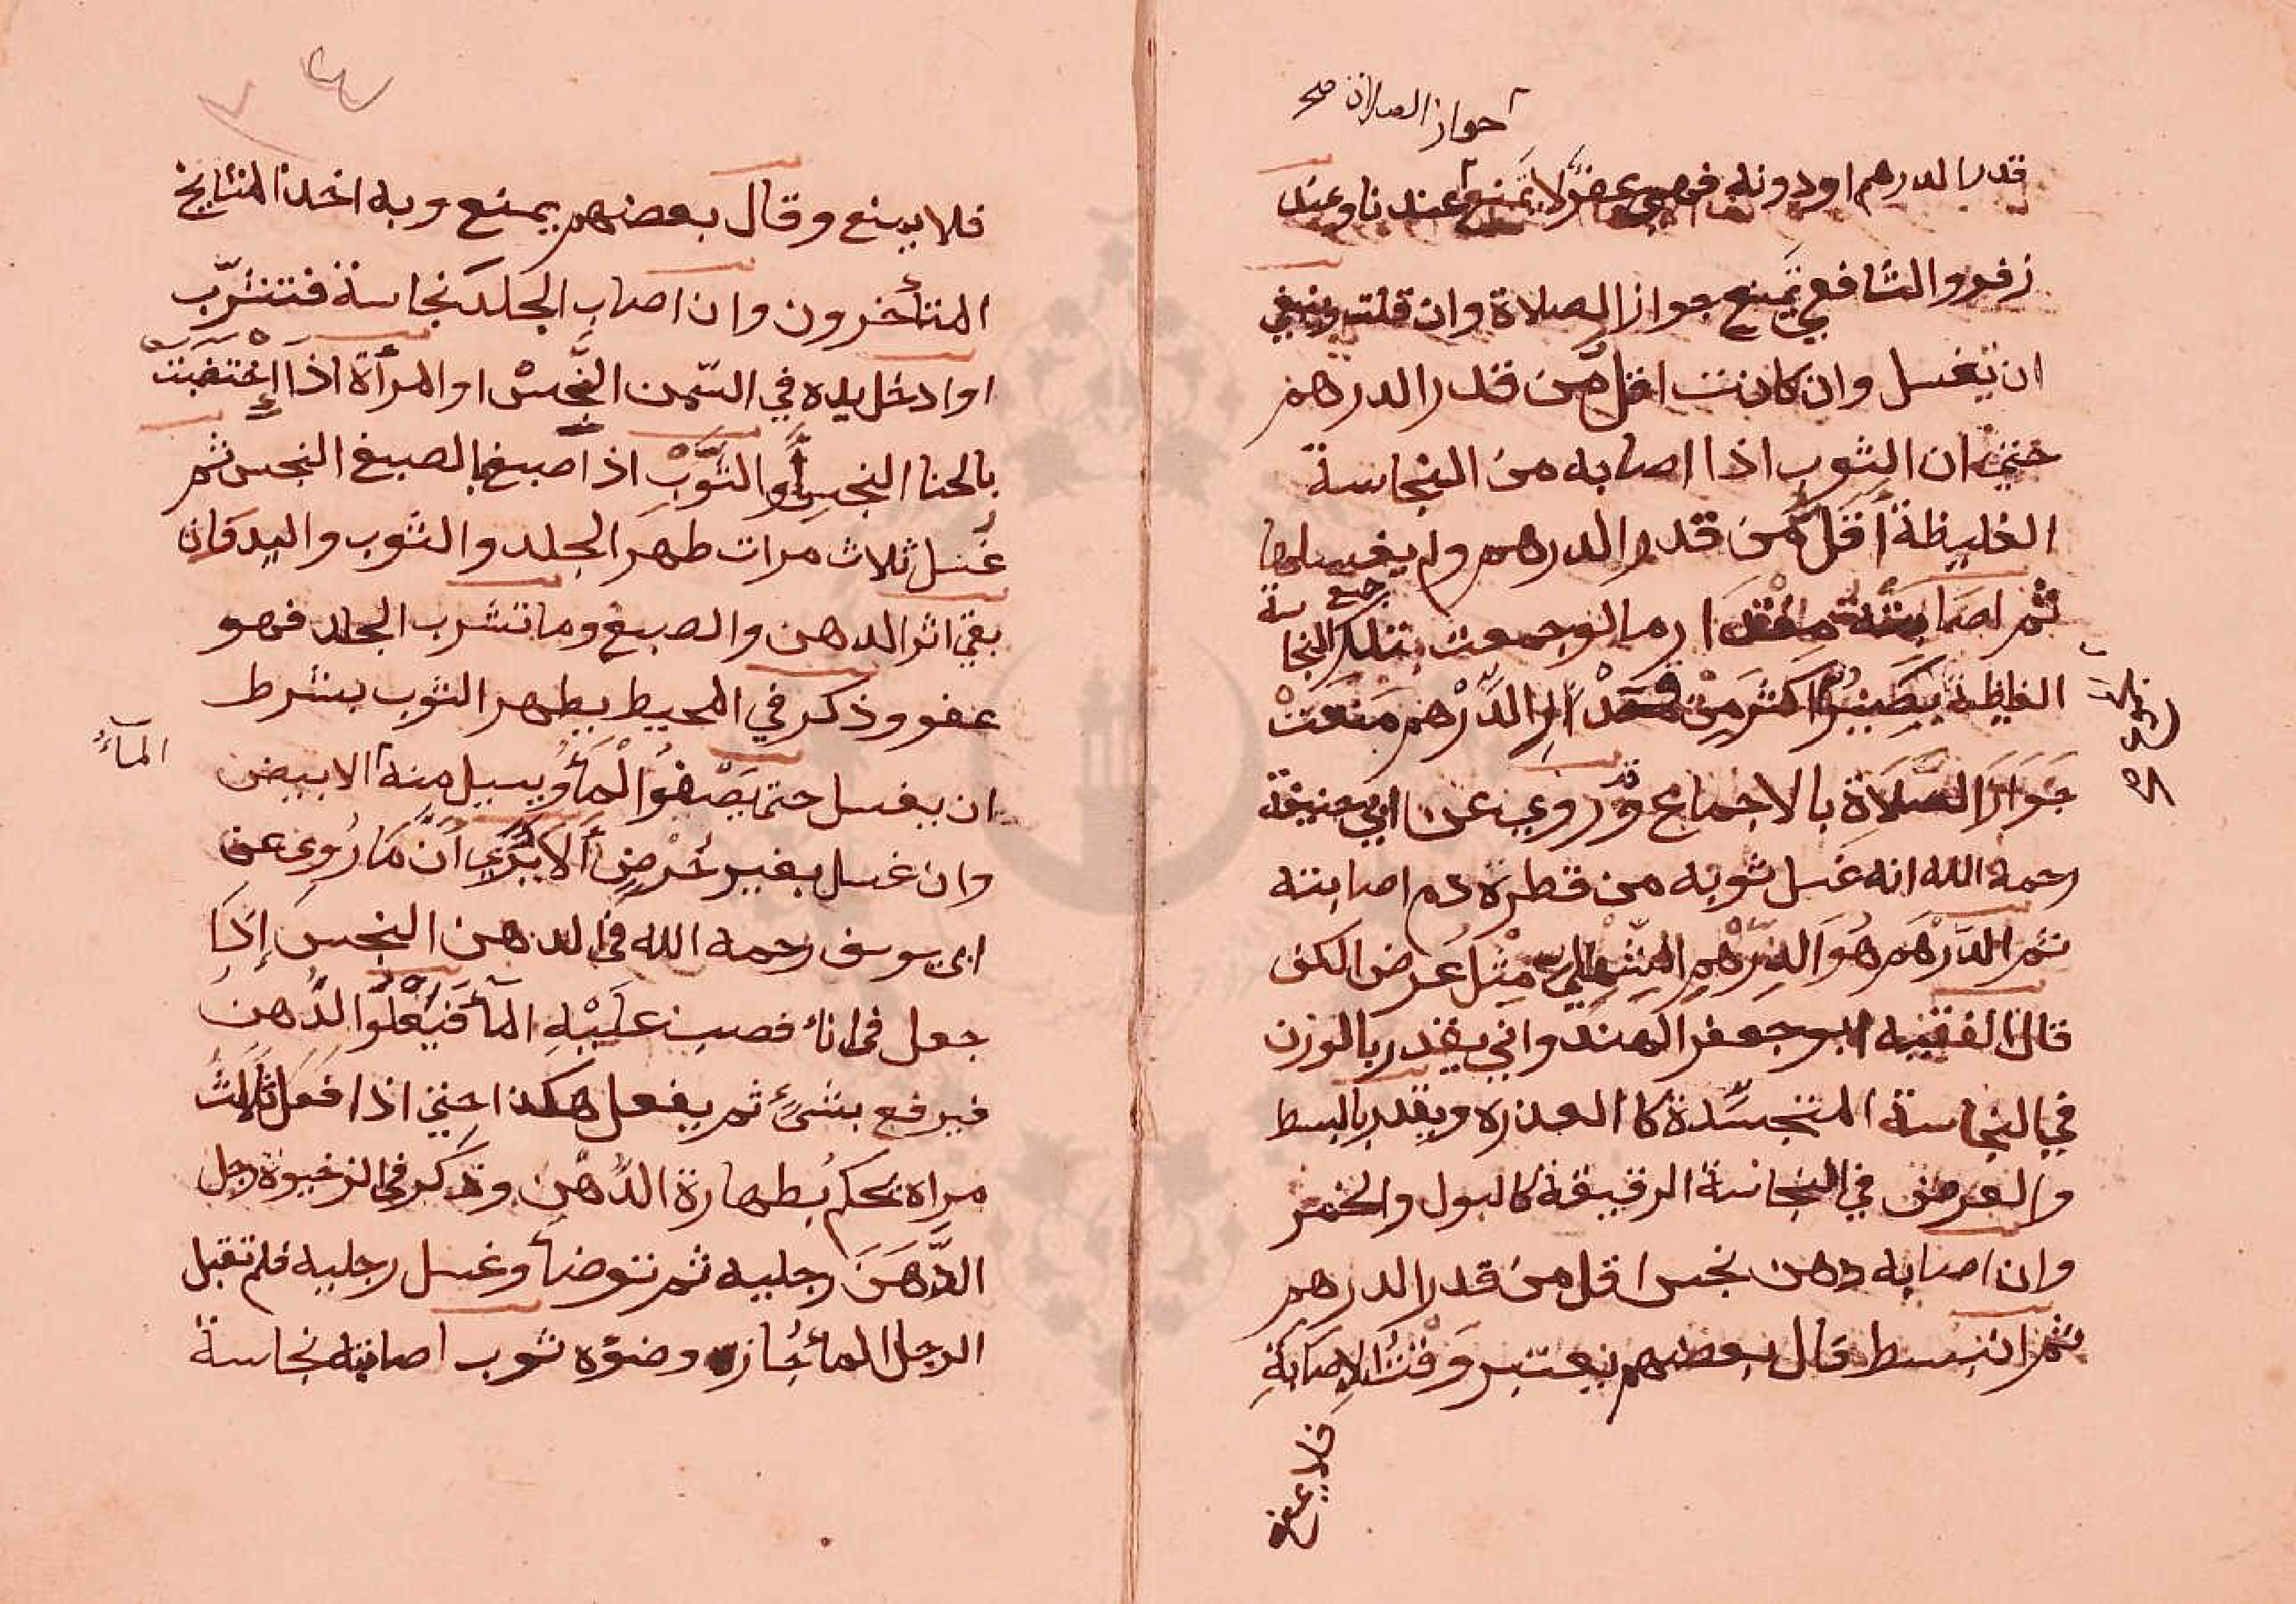 جواز الصلاة صح
قدر الدرهم او دونه فهي عفو لا تمنع عندنا وعند
زفر والشافعي تمنع جواز الصلاة وان قلت وينبغي
ان تغسل وان كانت اقل من قدر الدرهم
حتي ان الثوب اذا اصابه من النجاسة
الغليظة أقل من قدر الدرهم ولم يغسلها
ثم اصابته مقدار ما لو جمعت بتلك النجاسة
الغليظة يصير اكثر من قدر الدرهم منعت
جَوَازَ الصَّلَاة بالاجماع وقد روي عن ابي حنيفة
رحمه الله انه غسل ثوبه من قطرة دم اصابته
ثم الدّرهم هُوَ الدِّرْهم مِثل عَرض الكف
قال الفقيه ابو جعفر الهندواني يقدر بالوزن
في النجاسة المتجسّدة كا العذرة ويقدر بالبسط
والعرض في النجاسة الرقيقة كالبول والخمر
وان اصابه دهن نجس اقل من قدر الدرهم
ثم انبسط قال بعضهم يعتبر وقت الاصابة
فلا يمنع
فلا يمنع وقال بعضهم يمنع وبه اخذ المشايخ
المتأخرون وان اصاب الجلد نجاسة فتشرّب
او ادخل يده في السّمن النّجس او المرأة اذا اختضبت
بالحنا النجس أو الثّوب اذا صبغ بالصبغ النجس ثم
غُسل ثلاث مرات طهر الجلد والثوب واليد وان
بقي اثر الدهن والصبغ وما تشرب الجلد فهو
عفو وذكر في المحيط يطهر الثوب بشرط
ان يغسل حتى يَصْفُوَ الْمَأ ويسيل منه الابيض
المآء
وان غسل بغير حُرْضٍ ألا يُرَي أنَّ مَا رُوِي عن
ابي يوسف رحمه الله في الدهن النجس إذا
جعل في اناء فصب عَلَيْهِ المآء فَيَعْلُوا الدُّهن
فيرفع بشئ ثم يفعل هكذا حتي اذا فَعَل ثَلاثَ
مراة يحكم بطهارة الدُّهْن وذكر في الذخيرة رجل
ادَّهَنَ رجليه ثم توضأ وغسل رجليه فلم تقبل
الرجل الماء جُاز وضوٓه ثوب اصابته نجاسة